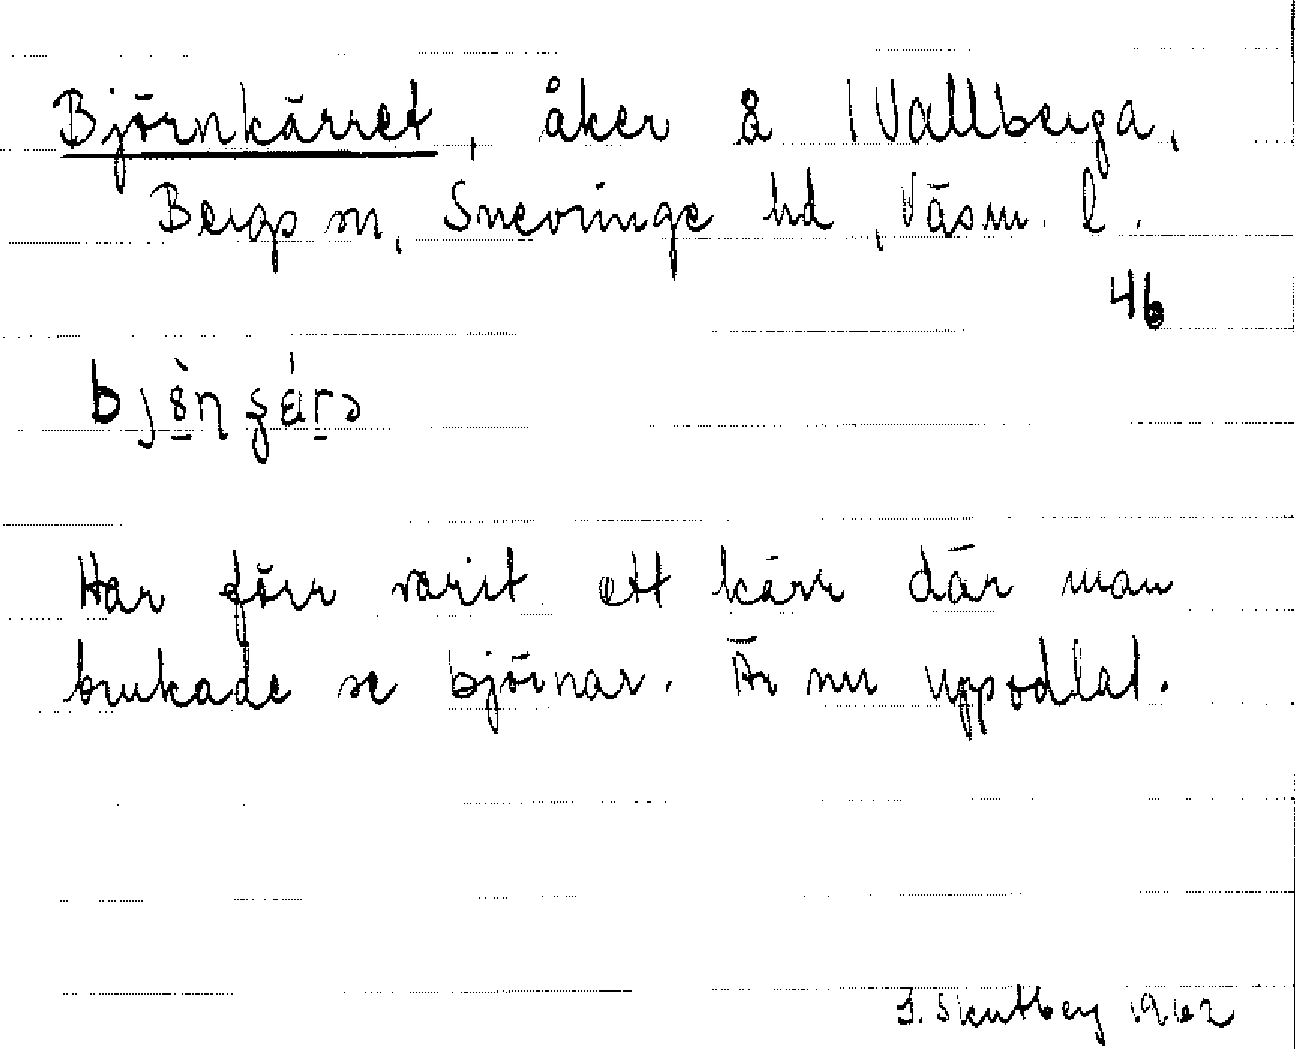 Björnkärret, åker å Vallberga,
Bergs sn, Snevringe hd, Väsm. l.
46
Har förr varit ett kärr där man
brukade se björnar. Är nu uppodlat.
J. Skutberg 1962